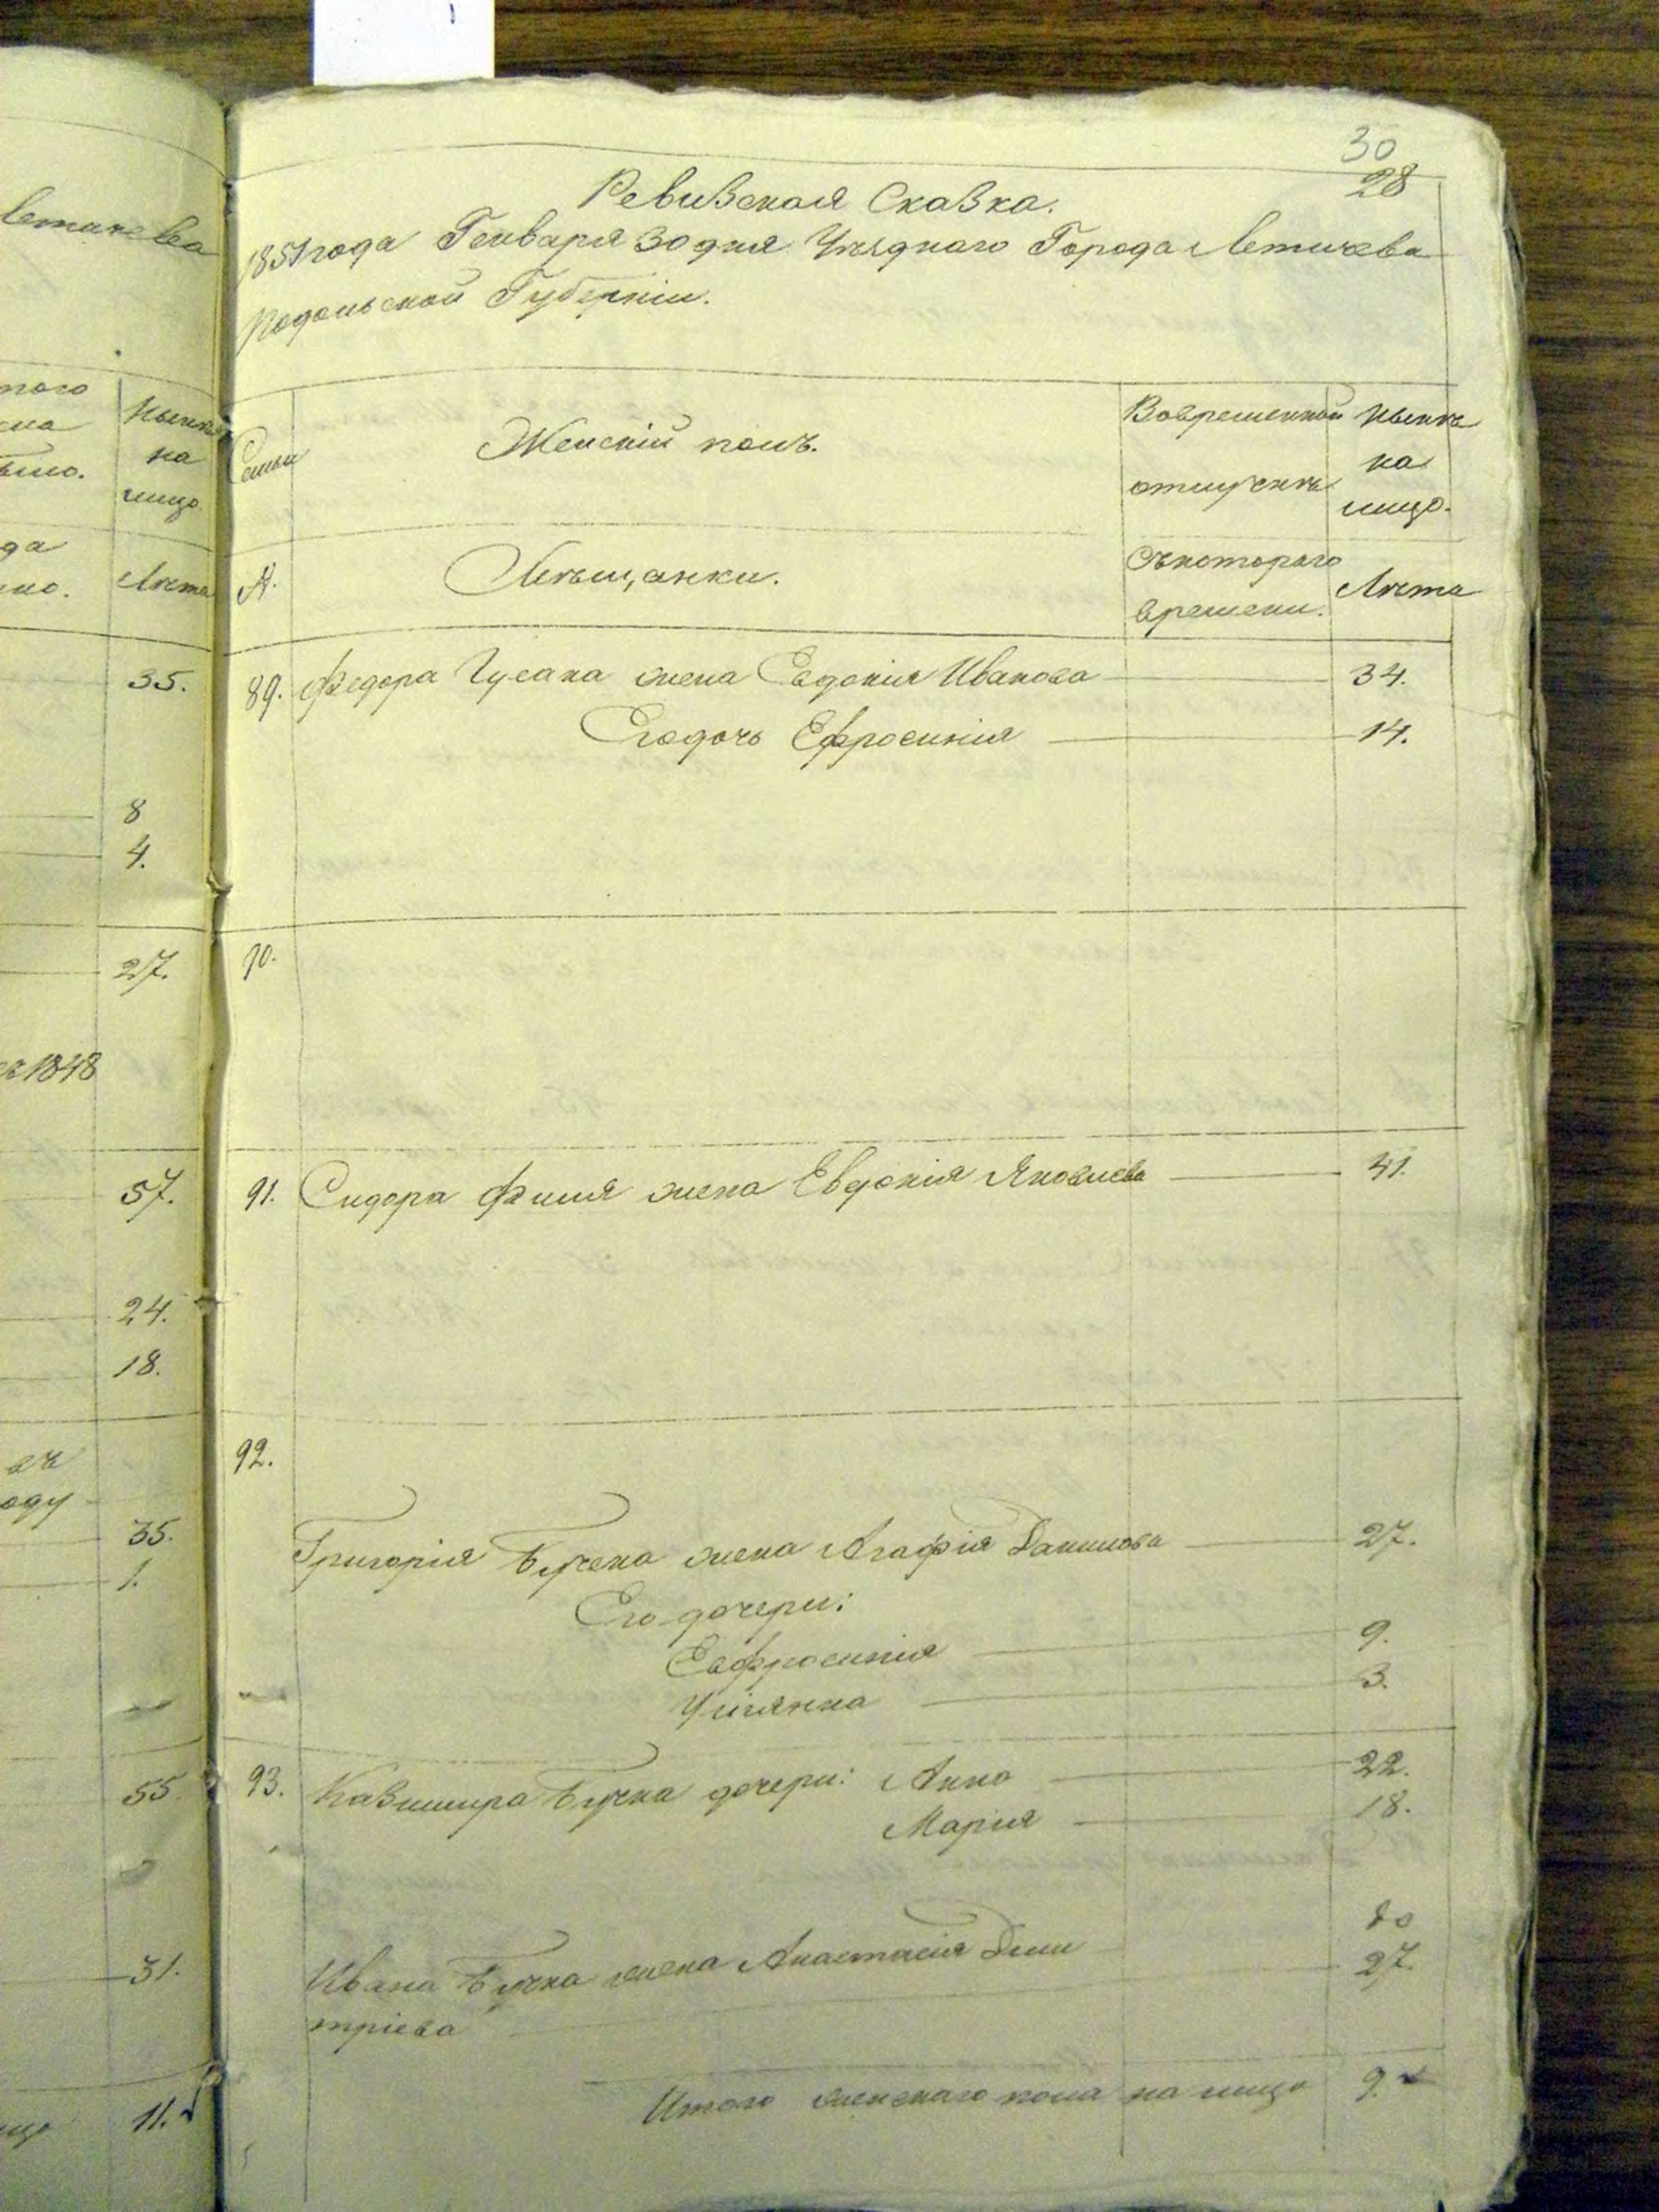 30
28
Ревизская Сказка.
1851 года Генваря 30 дня Уѣзднаго Города Летичева
Подольской Губерніи.
Семьи
Женскій полъ.
Вовременной
отлучкѣ
Нынѣ
на
лицо.
№.
Мѣщанки.
Съкотораго
времени.
Лѣта
89. Федора Гусака жена Евдокія Иванова 34.
Его дочь Ефросинія 14.
90.
91. Сидора Филя жена Евдокія Яковлева 41.
92.
Григорія Бучека жена Агафія Данилова 27.
Его дочери:
Евфросинія 9.
Улiянна 3.
93. Казимира Бучка дочери: Анна 22.
Марія 18.
Ивана Бучка жена Анастасія Дми
тріева 27.
Итого женскаго пола на лицо 9.
Нынѣ
на
лицо
Лѣта
35.
8
4.
27.
1848
57.
24.
18.
оду
35.
1.
55
31.
11.